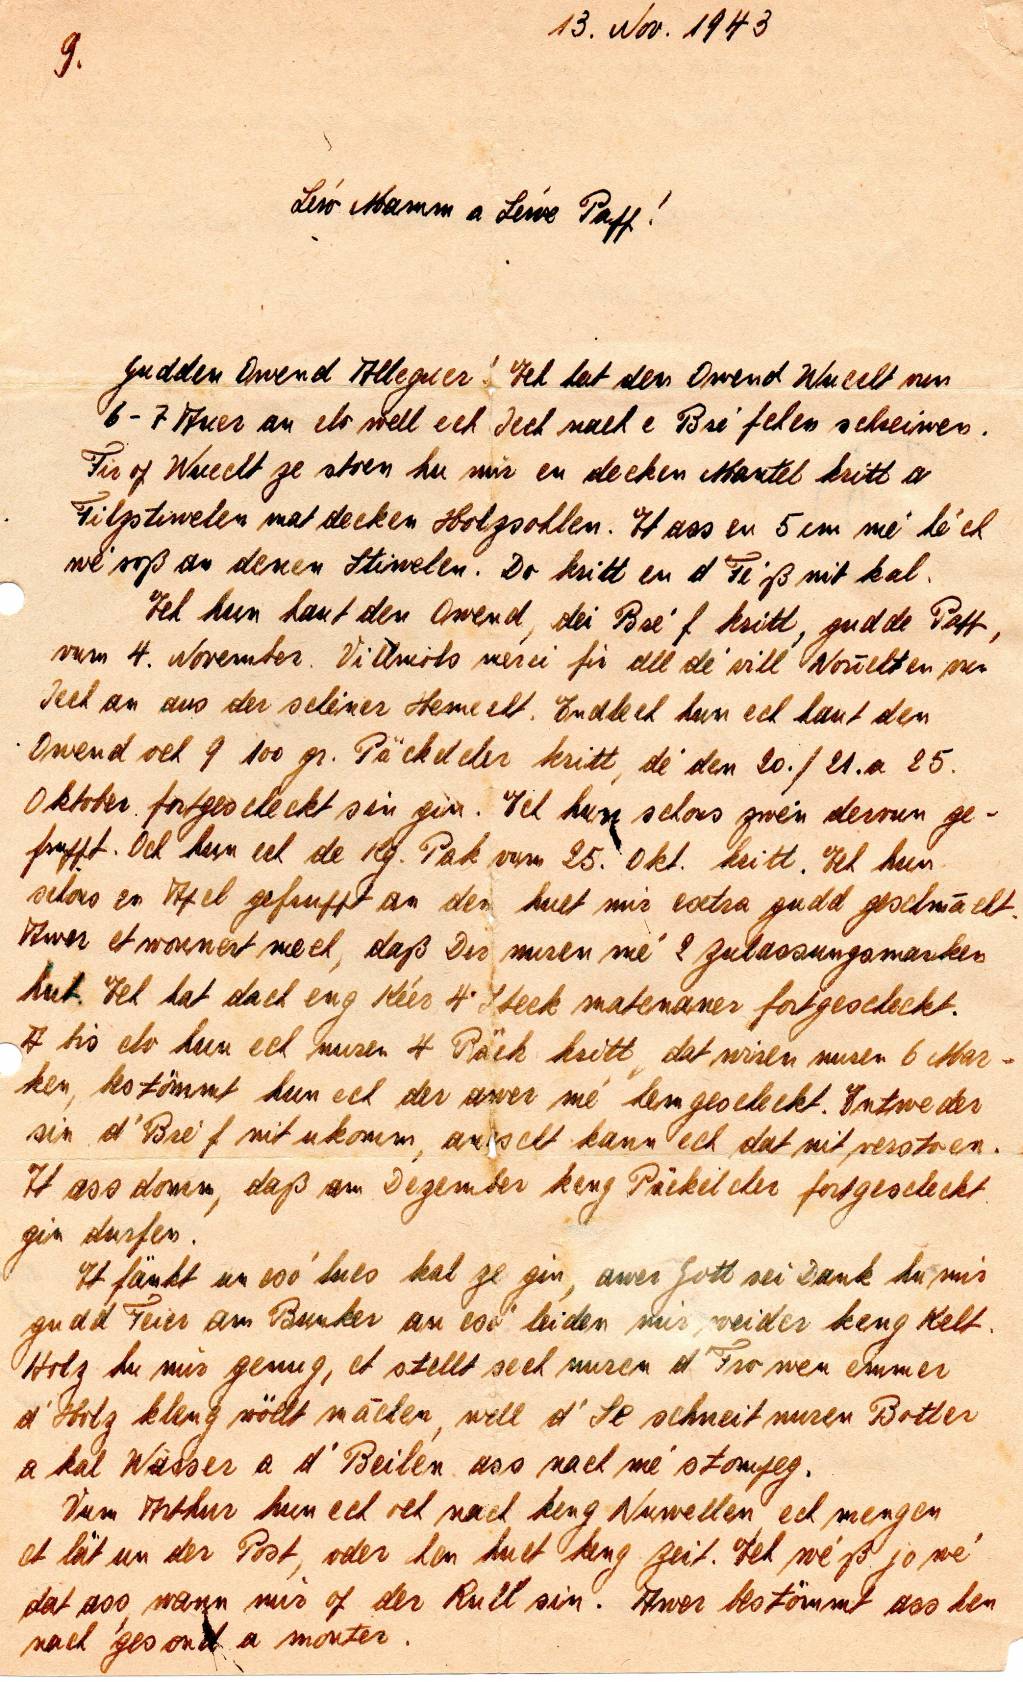 13. Nov. 1943
9.
Léiw Mamm a Léiwe Paff!
Gudden Owend Alleguer! Ech hat den Owend Wuecht vun
6-7 Auer an elo well ech Iech nach e Bréifchen schreiwen.
Fir of Wuecht ze stoen hu mir en decken Mantel kritt a
Filzstiwelen mat decken Holzsohlen. Et ass en 5 cm mé héch
wé soß an denen Stiwelen. Do kritt en d Féiß nit kal.
Ech hun haut den Owend, déi Bréf kritt, gudde Paff,
vum 4. November. Villmols merci fir all dé vill Noriichten vun
Iech an aus der schéiner Hemecht. Endlech hun ech haut den
Owend och 9 100 gr. Päckelcher kritt, dé den 20./21. a 25.
Oktober fortgescheckt sin gin. Ech hun schons zwén dervun ge-
frupft. Och hun ech de Kg. Pak vum 25. Okt. kritt. Ech hun
schons en Apel gefrupft an den huet mir extra gudd geschmācht.
Awer et wonnert mech, daß Dir nuren mé 2 Zulassungsmarken
hut. Ech hat dach eng Kéier 4 Steck matenaner fortgescheckt.
A bis elo hun ech nuren 4 Päck kritt, dat wiren nuren 6 Mar-
ken, bestömmt hun ech der awer mé hemgescheckt. Entweder
sin d'Bréf nit ukomm, anescht kann ech dat nit verstoen.
Et ass domm, daß am Dezember keng Päckelcher fortgescheckt
gin durfen.
Et fänkt un esó lues kal ze gin, awer Gott sei Dank hu mir
gudd Feier am Bunker an esó leiden mir weider keng Kelt.
Holz hu mir genug, et stellt sech nuren d Fro wen emmer
d'Holz kleng wöllt māchen, well d'Se schneit nuren Botter
a kal Wasser a d'Beilen ass nach mé stompeg.
Vum Arthur hun ech och nach keng Nuwellen ech mengen
et lät un der Post, oder hen huet keng Zeit. Ech wéß jo wé
dat ass, wann mir of der Rull sin. Awer bestömmt ass hen
nach gesond a monter.